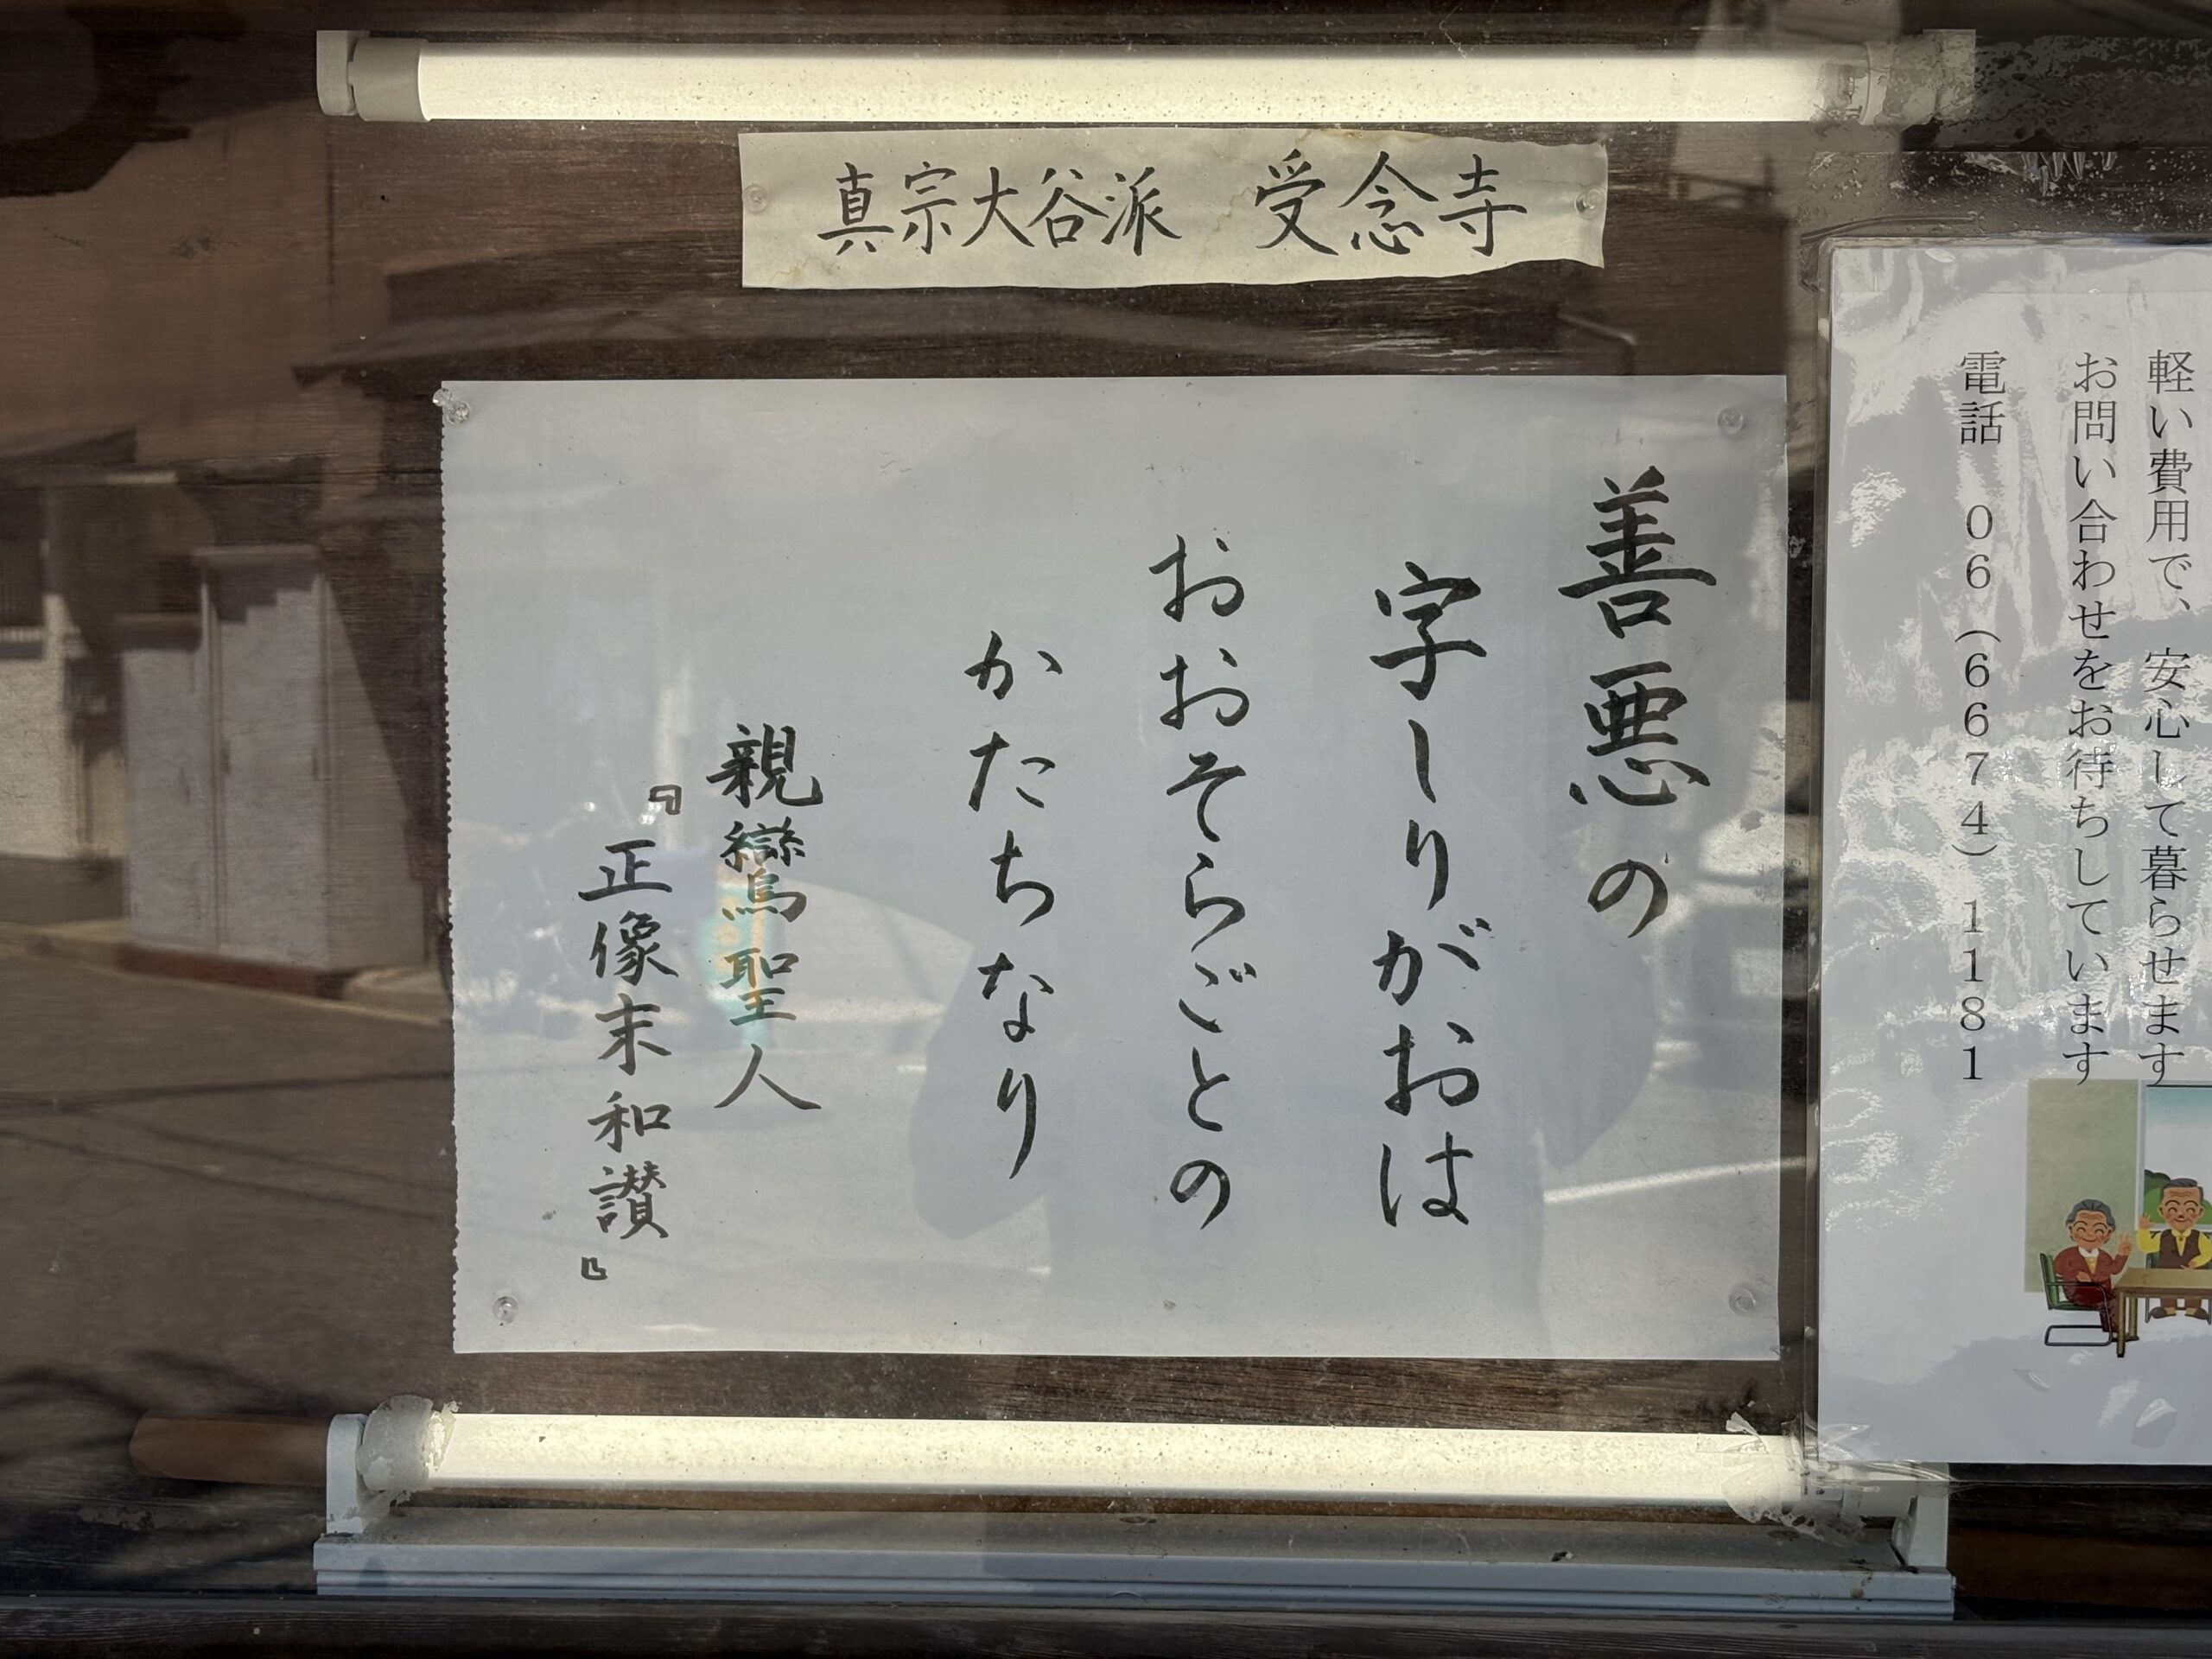 真宗大谷派　受念寺
善悪の
字しりがおは
おおそらごとの
かたちなり
親鸞聖人
『正像末和讃』
軽い費用で、安心して暮らせます
お問い合わせをお待ちしています
電話　06（6674）1181